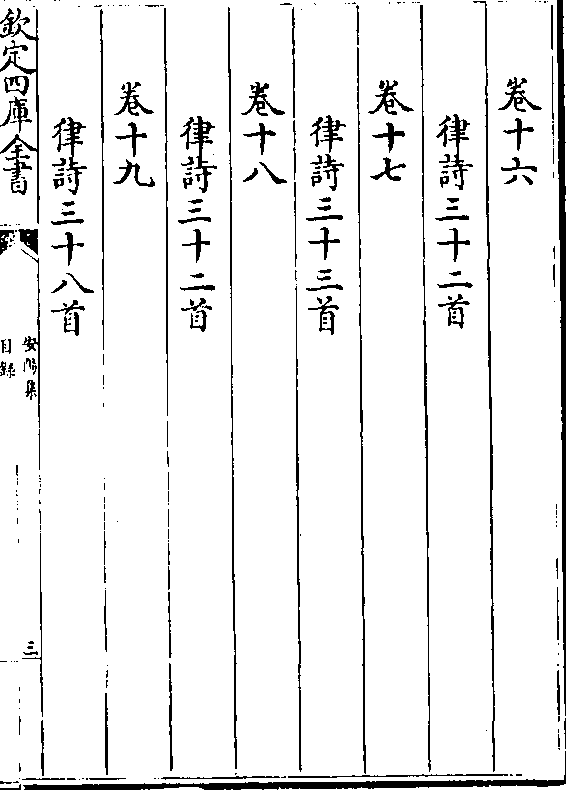 卷十六
律詩三十二首
卷十七
律詩三十三首
卷十八
律詩三十二首
卷十九
律詩三十八首
欽定四庫全書
安陽集
目錄
三